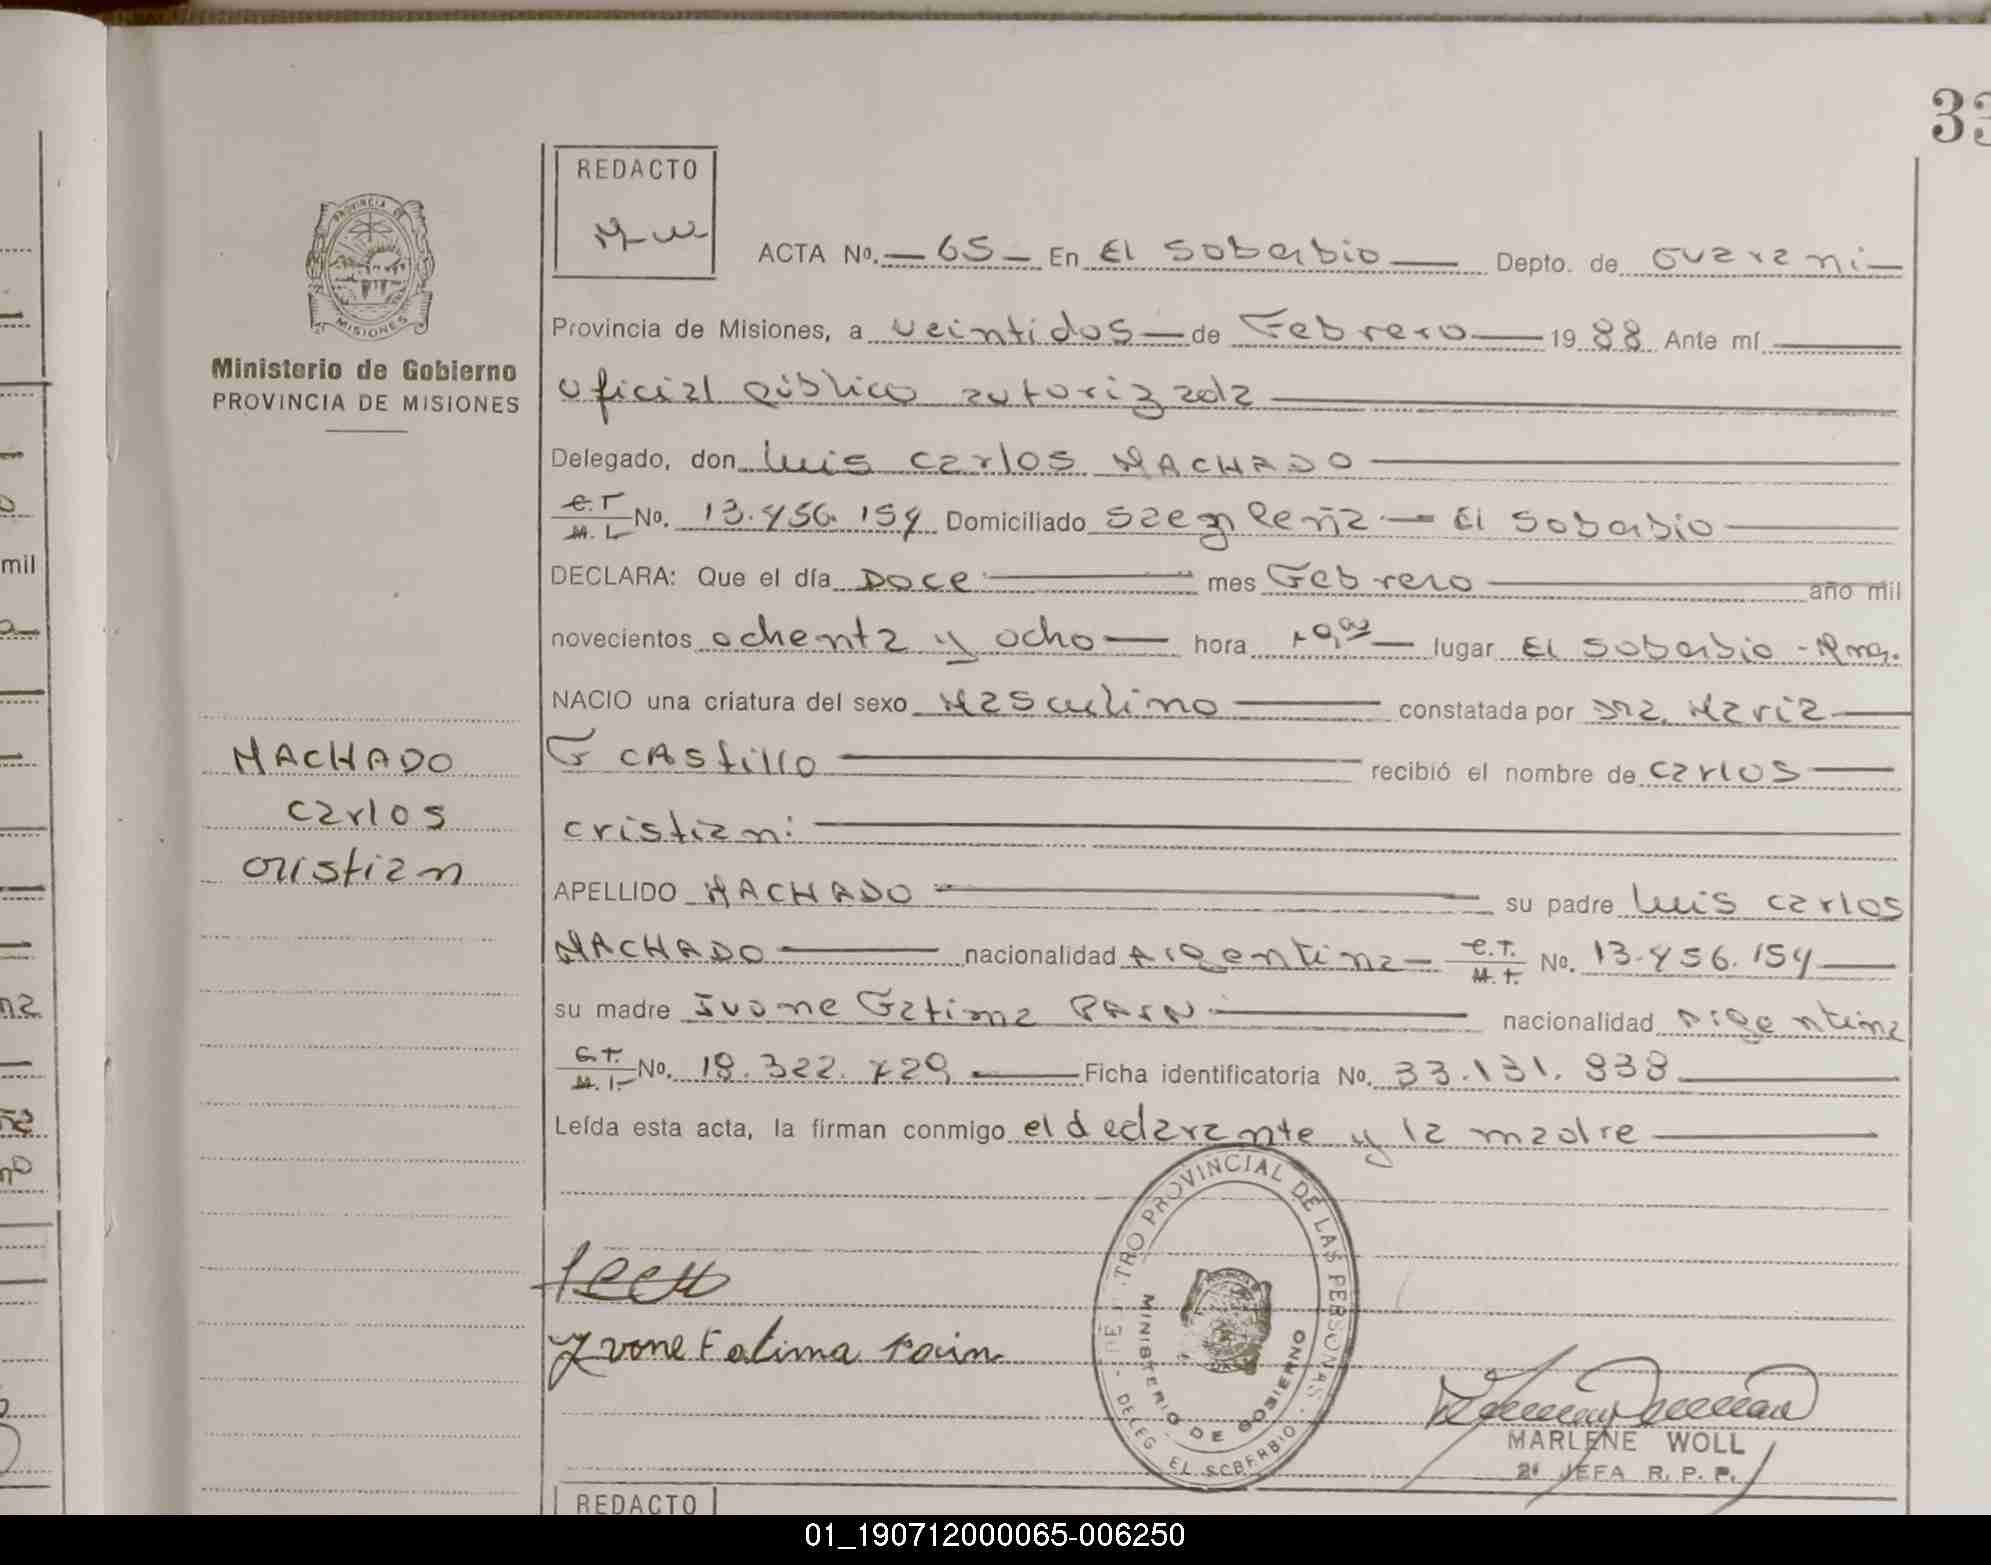 33
REDACTO
M W
ACTA No. 65 En El Soberbio Depto. de Guarani
Provincia de Misiones, a veintidos de Febrero 1988 Ante mí
oficial público autorizada
Delegado, don Luis Carlos MACHADO
No. 13.456.154 Domiciliado Saenz Peña - El Soberbio
DECLARA: Que el día Doce mes Febrero año mil
novecientos ochenta y ocho hora lugar El Soberbio -
NACIO una criatura del sexo Masculino constatada por Dra. Maria
G Castillo recibió el nombre de Carlos
Cristian:
APELLIDO MACHADO su padre Luis Carlos
MACHADO nacionalidad Argentina C.T. M.I. No. 13.456.154
su madre Ivone Fatima PAIN nacionalidad Argentina
C.T. M.I. No. 18.322.729 Ficha identificatoria No. 33.131.838
Leída esta acta, la firman conmigo el declarante y la madre
Yvone Fatima Pain
MARLENE WOLL
2ª JEFA R. P. P.
REDACTO
PROVINCIA DE
MISIONES
Ministerio de Gobierno
PROVINCIA DE MISIONES
MACHADO
Carlos
Cristian
TRO PROVINCIAL DE LAS PERSONAS
MINISTERIO DE GOBIERNO
DELEG. EL SOBERBIO
mil
01_190712000065-006250